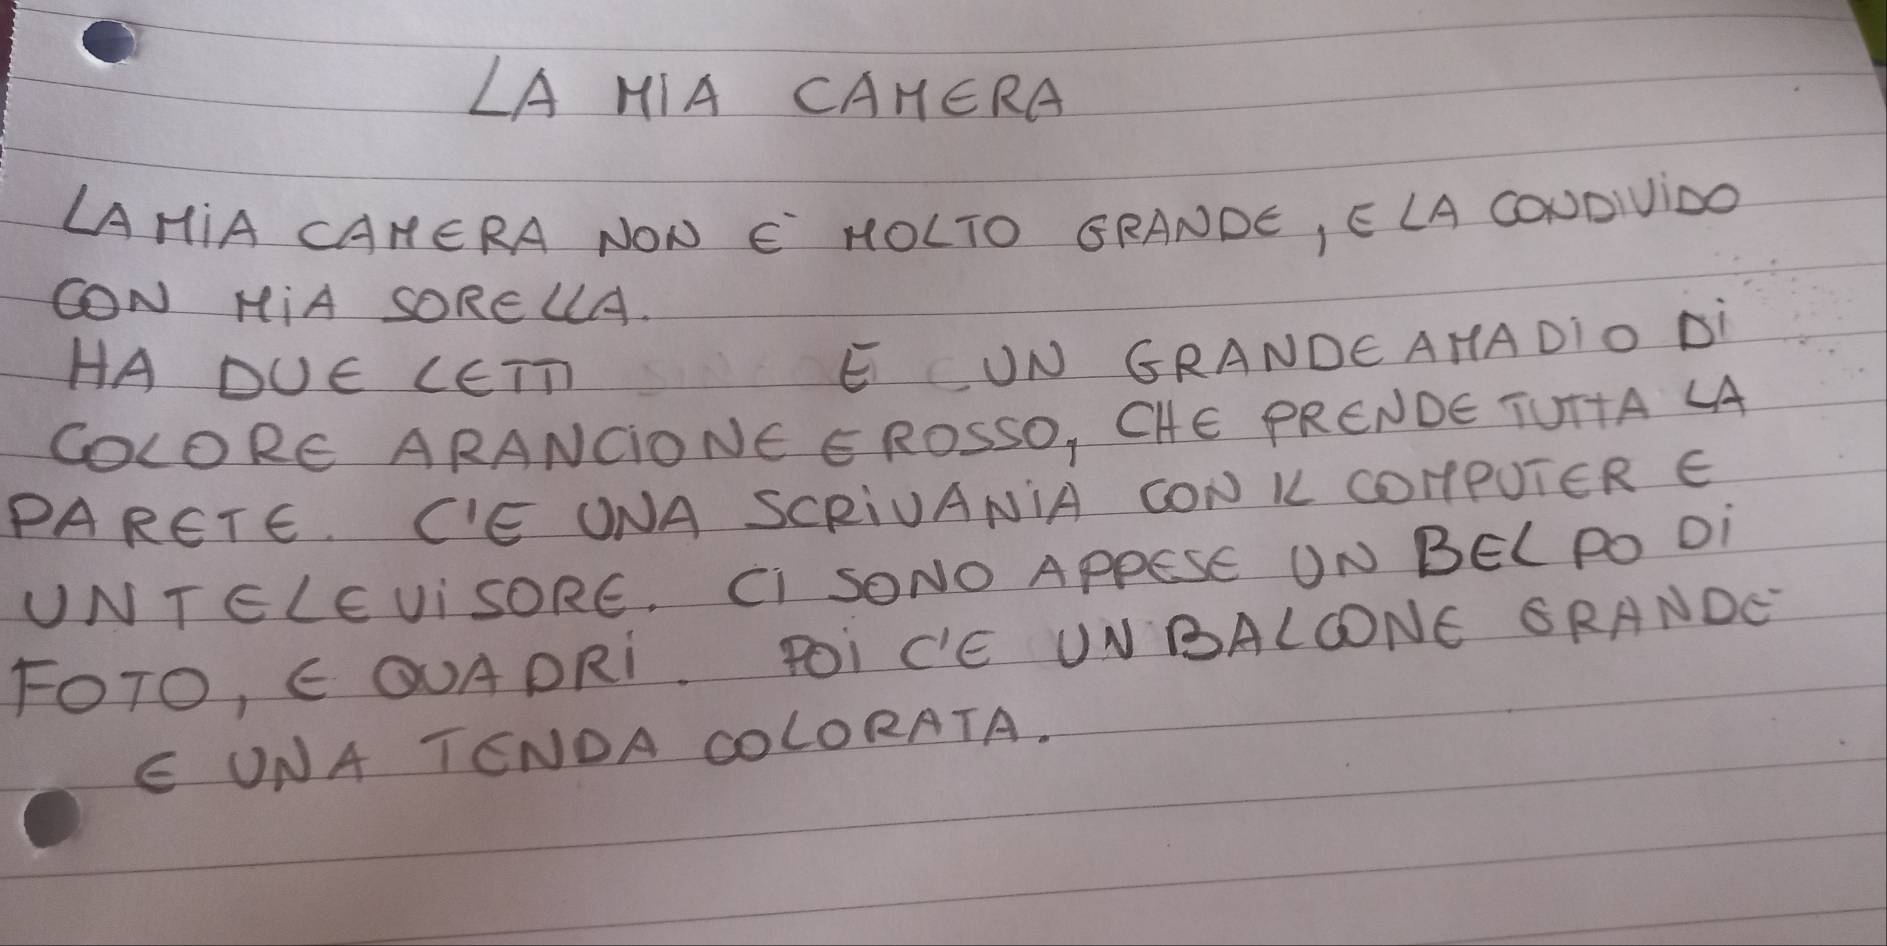 LA MIA CAMERA
LA MiA CAMERA NON E' MOLTO GRANDE, E LA CONDIViDO
CON MiA SORELLA.
HA DUE LETTI E UN GRANDE AMADIO Di
COLORE ARANCIONE E ROSSO, CHE PRENDE TUTTA LA
PARETE. C'E UNA SCRiVANiA CON IL COMPUTER E
UN TELEViSORE. CI SONO APPESE UN BEL PO Di
FOTO, E QUADRi. POi C'E UN BALCONE GRANDE
E UNA TENDA COLORATA.